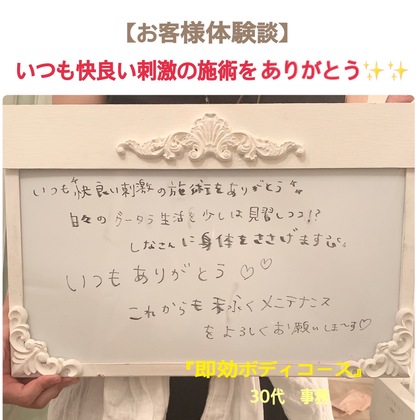 【お客様体験談】
いつも快良い刺激の施術をありがとう✨✨
いつも快良い刺激の施術をありがとう
日々のダータラ生活を少しは見習しつつ!?
しなさんに身体をささげます
いつもありがとう♡♡
これからも末永くメンテナンス
をよろしくお願いしまーす♡
『即効ボディコース』
30代 事務